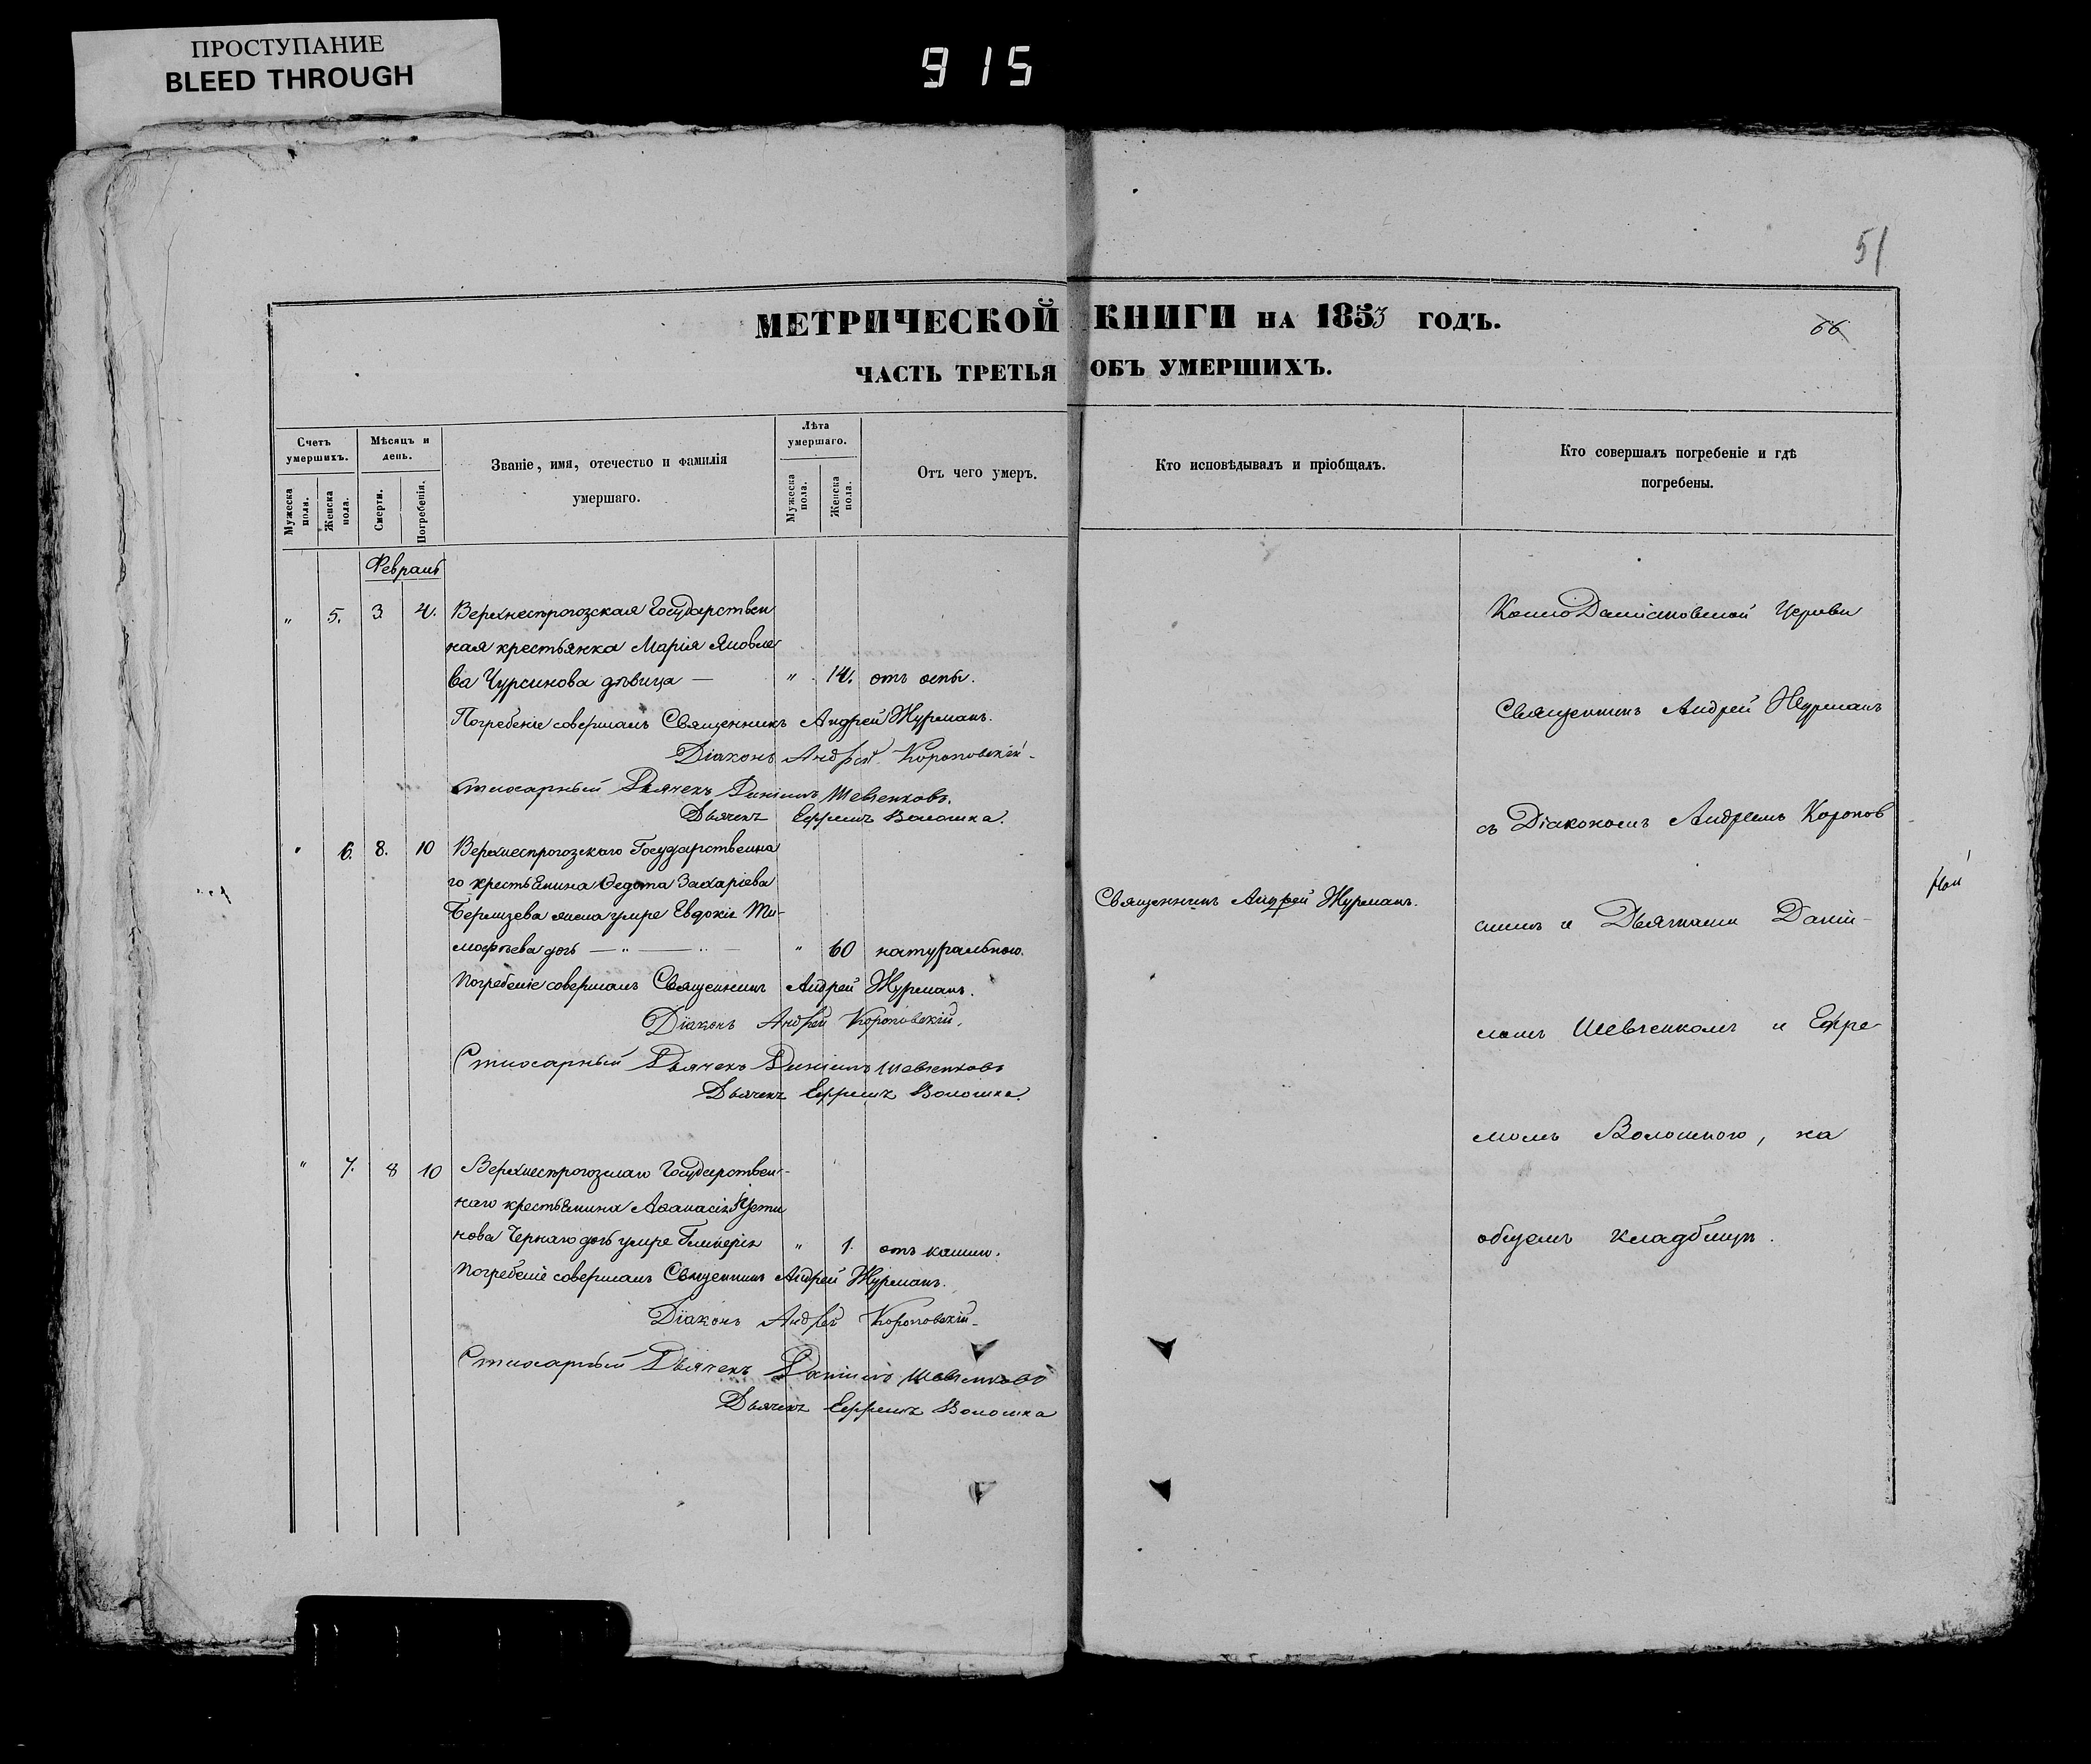 ПРОСТУПАНИЕ
BLEED THROUGH
915
51
МЕТРИЧЕСКОЙ КНИГИ НА 1853 ГОДЪ.
66
ЧАСТЬ ТРЕТЬЯ ОБЪ УМЕРШИХЪ.
Счетъ умершихъ.
Мужеска пола.
Женска пола.
Мѣсяцъ и день.
Смерти.
Погребенія.
Званіе, имя, отечество и фамилія
умершаго.
Лѣта умершаго.
Мужеска пола.
Женска пола.
Отъ чего умеръ.
Кто исповѣдывалъ и пріобщалъ.
Кто совершалъ погребеніе и гдѣ
погребены.
Февраль
" 5. 3 4. Верхнесѣрогозская Государствен
ная крестьянка Марія Яковле
ва Чурсинова дѣвица — " 14. отъ оспы.
Погребеніе совершалъ Священникъ Андрей Журманъ.
Діаконъ Андрей Короповскій
Стихарный Дьячекъ Даніилъ Шевченковъ.
Дьячекъ Ефремъ Волошка.
" 6. 8. 10 Верхнесѣрогозскаго Государственна
го крестьянина Федота Захаріева
жена умре Евдокія Ти-
мофѣева дочь — " — " — " 60 натуральною.
Погребеніе совершалъ Священникъ Андрей Журманъ.
Діаконъ Андрей Короповскій.
Стихарный Дьячекъ Даніилъ Шевченковъ
Дьячекъ Ефремъ Волошка.
" 7. 8 10 Верхнесѣрогозскаго Государствен-
наго крестьянина Аѳанасія Усти
нова Чернаго дочь умре Гликерія " 1. отъ кашлю.
Погребеніе совершалъ Священникъ Андрей Журманъ.
Діаконъ Андрей Короповскій
Стихарный Дьячекъ Даніилъ Шевченковъ
Дьячекъ Ефремъ Волошка
Священникъ Андрей Журманъ.
Церкви
Священникъ Андрей Журманъ
съ Діакономъ Андреемъ Коропов
скимъ и Дьячками Даніи-
ломъ Шевченкомъ и Ефре
момъ Волошкою, на
общемъ кладбищѣ.